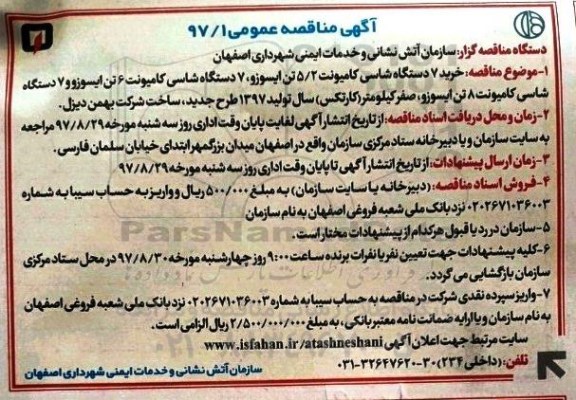 آگهی مناقصه عمومی ۹۷/۱
دستگاه مناقصه گزار: سازمان آتش نشانی و خدمات ایمنی شهرداری اصفهان
۱-موضوع مناقصه: خرید ۷ دستگاه شاسی کامیونت ۵/۲ تن ایسوزو، ۷ دستگاه شاسی کامیونت ۶ تن ایسوزو و ۷ دستگاه
شاسی کامیونت ۸ تن ایسوزو، صفر کیلومتر (کارتکس) سال تولید ۱۳۹۷ طرح جدید، ساخت شرکت بهمن دیزل.
۲-زمان و محل دریافت اسناد مناقصه: از تاریخ انتشار آگهی لغایت پایان وقت اداری روز سه شنبه مورخه ۹۷/۸/۲۹ مراجعه
به سایت سازمان و یا دبیرخانه ستاد مرکزی سازمان واقع در اصفهان میدان بزرگمهر ابتدای خیابان سلمان فارسی.
۳-زمان ارسال پیشنهادات: از تاریخ انتشار آگهی تا پایان وقت اداری روز سه شنبه مورخه ۹۷/۸/۲۹
۴-فروش اسناد مناقصه: (دبیرخانه یا سایت سازمان) به مبلغ ۵۰۰/۰۰۰ ریال و واریز به حساب سیبا به شماره
۰۲۰۲۶۷۱۰۳۶۰۰۳ نزد بانک ملی شعبه فروغی اصفهان به نام سازمان
۵-سازمان در رد یا قبول هر کدام از پیشنهادات مختار است.
۶-کلیه پیشنهادات جهت تعیین نفر یا نفرات برنده ساعت ۹:۰۰ روز چهارشنبه مورخه ۹۷/۸/۳۰ در محل ستاد مرکزی
سازمان بازگشایی می گردد.
۷-واریز سپرده نقدی شرکت در مناقصه به حساب سیبا به شماره ۰۲۰۲۶۷۱۰۳۶۰۰۳ نزد بانک ملی شعبه فروغی اصفهان
به نام سازمان و یا ارایه ضمانت نامه معتبر بانکی، به مبلغ ۲/۵۰۰/۰۰۰/۰۰۰ ریال الزامی است.
سایت مرتبط جهت اعلان آگهی www.isfahan.ir/atashneshani
تلفن: (داخلی ۲۳۴) ۳۰-۳۲۶۴۷۶۲۰-۰۳۱
سازمان آتش نشانی و خدمات ایمنی شهرداری اصفهان